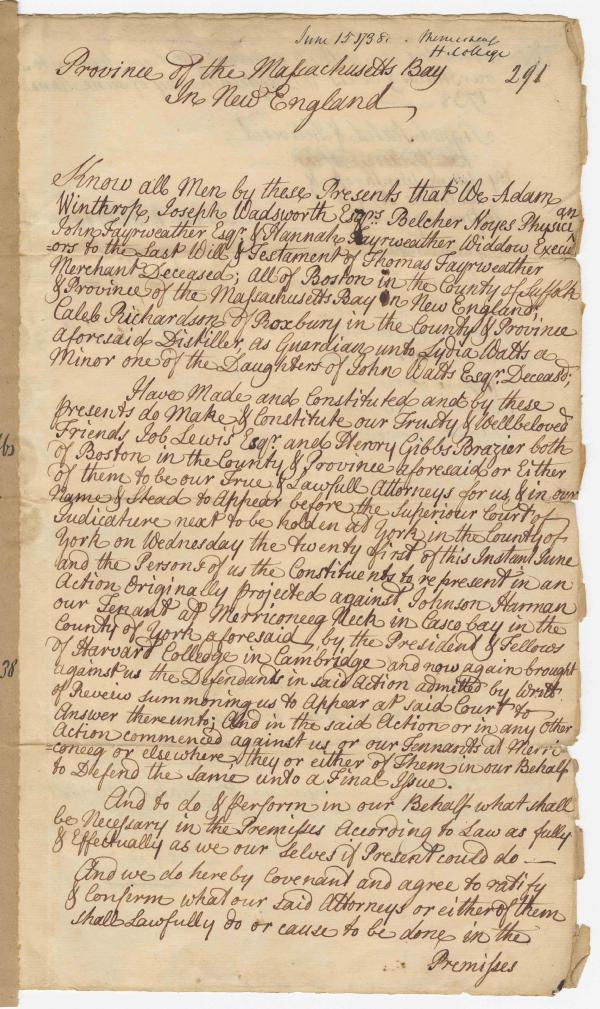 June 15 1738. Merriconeag
H. College
Province of the Massachusetts Bay 291
In New England
Know all Men by these Presents that We Adam
Winthrop, Joseph Wadsworth Esqrs. Belcher Noyes Physici
an
John Fayrweather Esqr. & Hannah Fayrweather Widdow Execut
ors to the Last Will & Testament of Thomas Fayrweather
Merchant Deceased; all of Boston in the County of Suffolk
& Province of the Massachusetts Bay In New England,
Caleb Richardson of Roxbury in the County & Province
aforesaid Distiller, as Guardian unto Lydia Watts a
Minor one of the Daughters of John Watts Esqr. Deceasd;
Have Made and Constituted and by these
presents do Make & Constitute our Trusty & Wellbeloved
Friends Job Lewis Esqr. and Henry Gibbs Brazier both
of Boston in the County & Province aforesaid or Either
of them to be our True & Lawfull Attorneys for us, & in our
Name & Stead to Appear before the Superiour Court of
Judicature next to be holden at York in the County of
York on Wednesday the twenty first of this Instant June
and the Persons of us the Constituents to represent in an
Action Originally projected against Johnson Harman
our Tenant at Merriconeeg Neck in Casco bay in the
County of York aforesaid, by the President & Fellows
of Harvard Colledge in Cambridge and now again brought
against us the Defendants in said Action admitted by Writt
of Reveiw summoning us to Appear at said Court to
Answer thereunto; And in the said Action or in any other
Action commenced against us or our Tennants at Merri
=coneeg or elsewhere they or either of Them in our Behalf
to Defend the same unto a Final Issue.
And to do & perform in our Behalf what shall
be Necessary in the Premisses According to Law as fully
& Effectually as we our selves if Present could do —
And we do hereby Covenant and agree to ratify
& Confirm what our said Attorneys or either of them
shall Lawfully do or cause to be done in the
Premisses
38